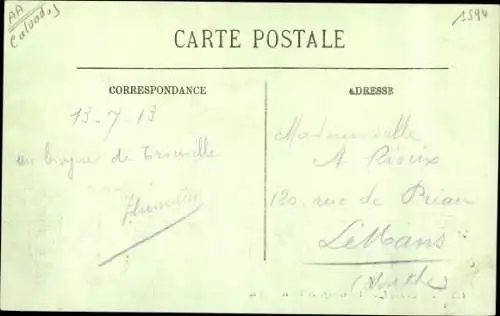 AA
Calvados
1594
CARTE POSTALE
CORRESPONDANCE
ADRESSE
13-7-13
un bonjour de Trouville
Mademoiselle
A Rioux
120. rue de
Le Mans
(Sarthe)